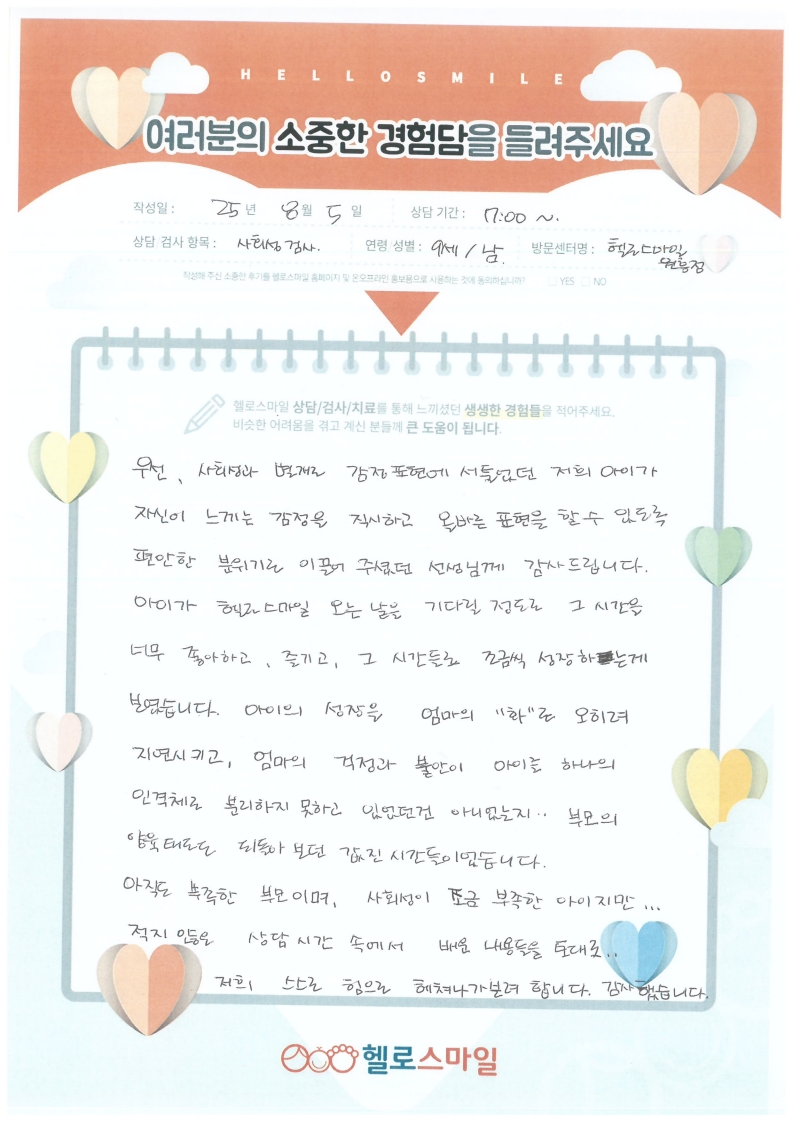 HELLOSMILE
여러분의 소중한 경험담을 들려주세요
작성일 : 25 년 8 월 5 일 상담 기간 : 17:00 ~.
상담 검사 항목 : 사회성 검사. 연령 성별 : 9세 / 남. 방문센터명 : 헬로스마일
작성해 주신 소중한 후기를 헬로스마일 홈페이지 및 온오프라인 홍보용으로 사용하는 것에 동의하십니까? □ YES □ NO
헬로스마일 상담/검사/치료를 통해 느끼셨던 생생한 경험들을 적어주세요.
비슷한 어려움을 겪고 계신 분들께 큰 도움이 됩니다.
우선, 사회성과 별개로 감정표현에 서툴었던 저희 아이가
자신이 느끼는 감정을 직시하고 올바른 표현을 할 수 있도록
편안한 분위기로 이끌어 주셨던 선생님께 감사드립니다.
아이가 헬로스마일 오는 날을 기다릴 정도로 그 시간을
너무 좋아하고, 즐기고, 그 시간들로 조금씩 성장하는게
보였습니다. 아이의 성장을 엄마의 "화"로 오히려
지연시키고, 엄마의 걱정과 불안이 아이를 하나의
인격체로 분리하지 못하고 있었던건 아니었는지.. 부모의
양육태도도 되돌아 보던 값진 시간들이었습니다.
아직도 부족한 부모이며, 사회성이 조금 부족한 아이지만...
적지 않은 상담 시간 속에서 배운 내용들을 토대로..
저희, 스스로 힘으로 헤쳐나가보려 합니다. 감사했습니다.
헬로스마일